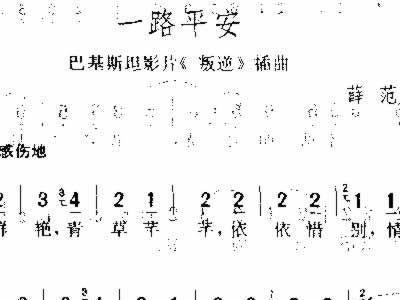 一路平安
巴基斯坦影片《叛逆》插曲
薛 范
感伤地
2 | 3 3 4 | 2 1 | 2 2 | 2 2 | 2 1 1
鲜 艳,青 草 芊 芊,依 依 惜 别,情